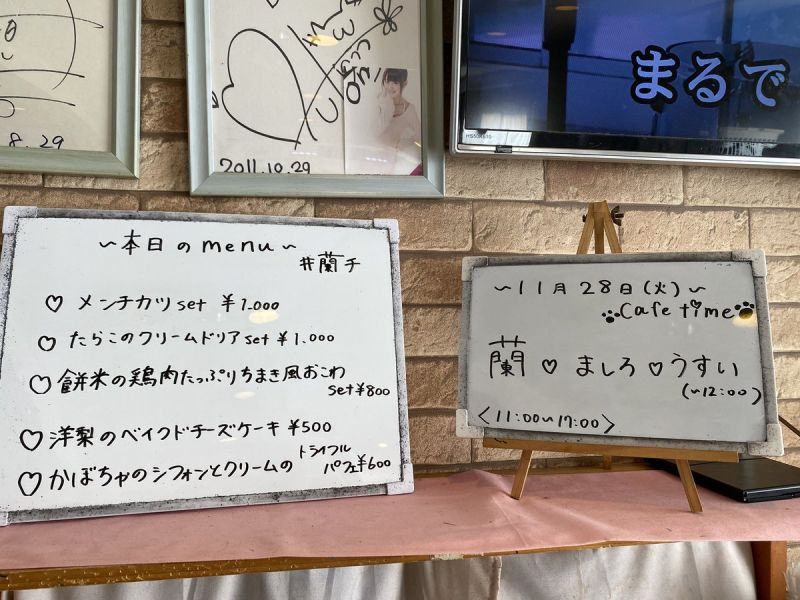 8.29
2011.10.29
まるで
～本日のmenu～
#蘭チ
♡ メンチカツset ¥1.000
♡ たらこのクリームドリアset ¥1.000
♡ 餅米の鶏肉たっぷりちまき風おこわ
set¥800
♡ 洋梨のベイクドチーズケーキ ¥500
♡ かぼちゃのシフォンとクリームの トライフル
パフェ¥600
～11月28日(火)～
Cafe time
蘭♡ましろ♡うすい
(～12:00)
<11:00～17:00>